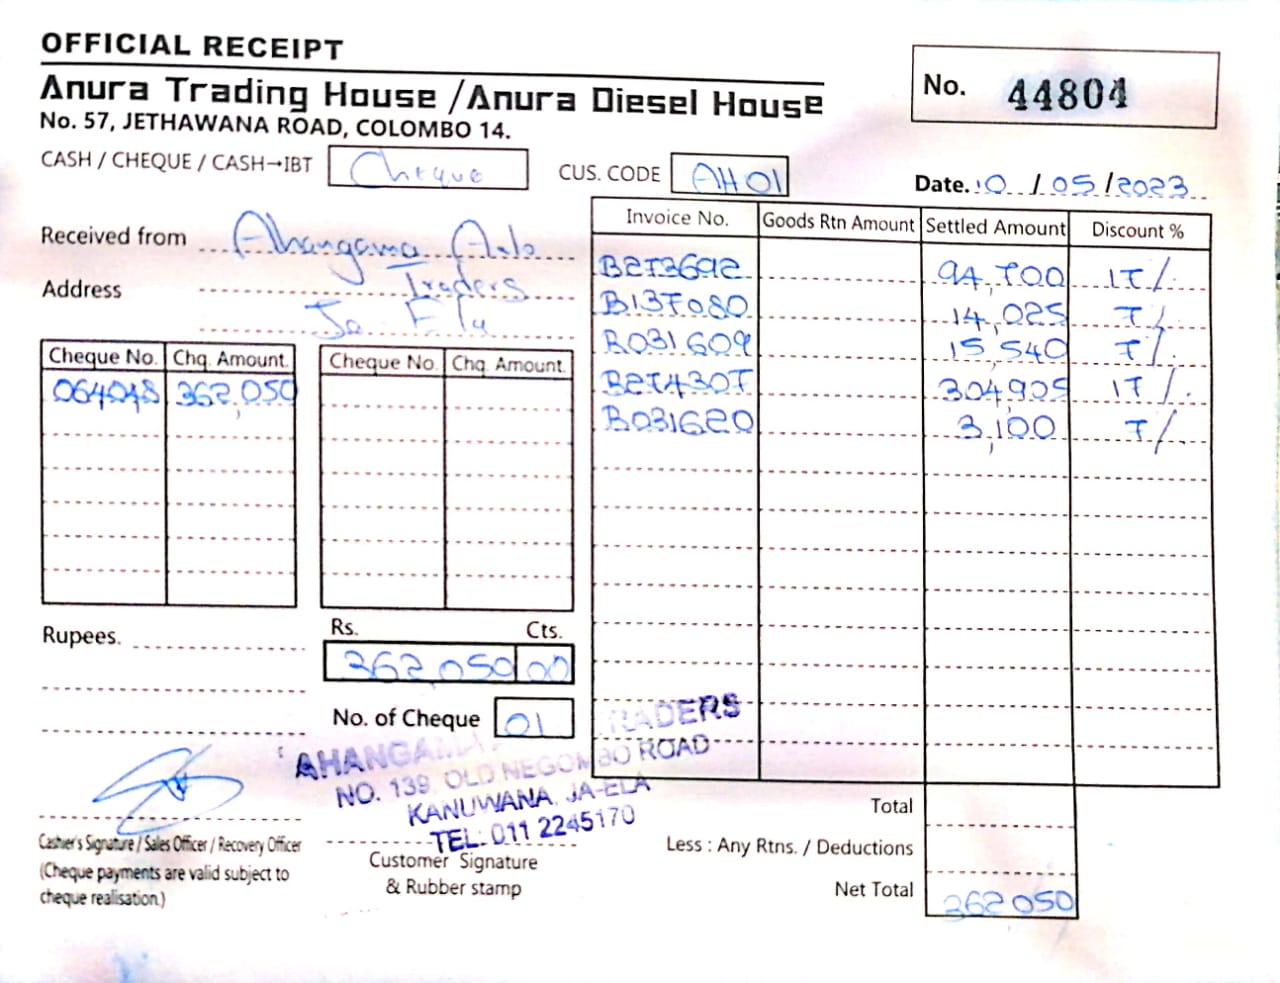 OFFICIAL RECEIPT
Anura Trading House / Anura Diesel House
No. 57, JETHAWANA ROAD, COLOMBO 14.
No. 44804
CASH / CHEQUE / CASH→IBT Cheque CUS. CODE AH01
Date. 10/05/2023
Received from Ahangama Auto
Address Traders
Ja Ela
Cheque No. Chq. Amount. Cheque No. Chq. Amount.
064048 362,050
Invoice No. Goods Rtn Amount Settled Amount Discount %
B2T3692 94,700 17%
B137080 14,025 7%
B031609 15,540 7%
B2T4307 304,905 17%
B031620 3,100 7%
Rupees.
Rs. Cts.
362,050 00
No. of Cheque 01
AHANGAMA TRADERS
NO. 139, OLD NEGOMBO ROAD
KANUWANA, JA-ELA
TEL: 011 2245170
Cashier's Signature / Sales Officer / Recovery Officer
(Cheque payments are valid subject to
cheque realisation.)
Customer Signature
& Rubber stamp
Total
Less : Any Rtns. / Deductions
Net Total 362,050